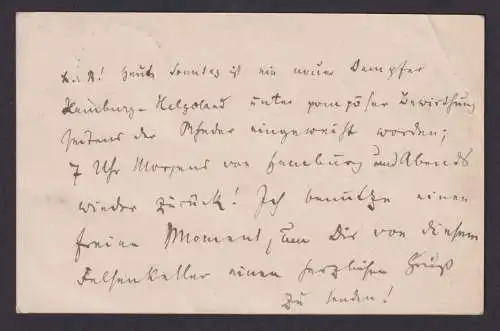 L. R.! Heute Sonntag ist ein neuer Dampfer
Hamburg-Helgoland unter pompöser Bewirthung
seitens der Rheder eingeweiht worden;
7 Uhr Morgens von Hamburg und Abends
wieder zurück! Ich benutze einen
freien Moment, um Dir von diesem
Felsenkeller einen herzlichen Gruß
zu senden!